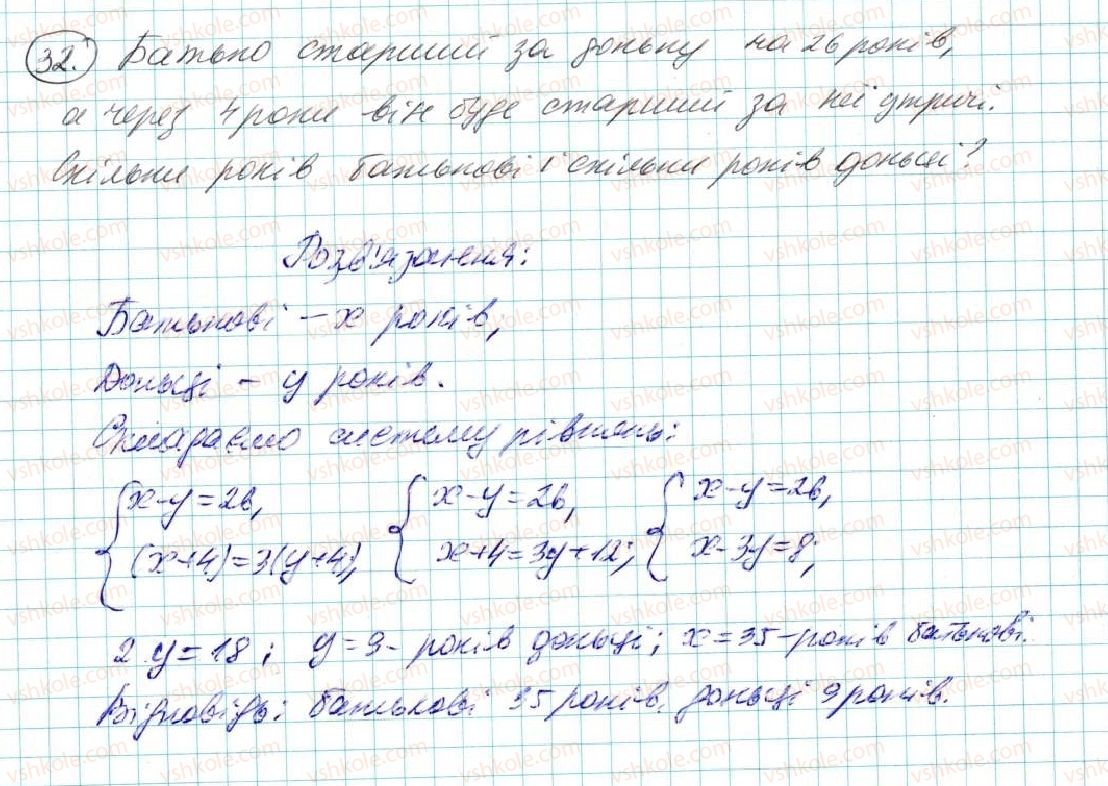 32. Батько старший за доньку на 26 років,
а через 4 роки він буде старший за неї утричі.
Скільки років батькові і скільки років доньці?
Розв'язання:
Батькові – x років,
Доньці – y років.
Складаємо систему рівнянь:
{x-y=26, {x-y=26, {x-y=26,
(x+4)=3(y+4), x+4=3y+12; x-3y=8;
2y=18; y=9- років доньці; x=35-років батькові.
Відповідь: батькові 35 років, доньці 9 років.
vshkole.com